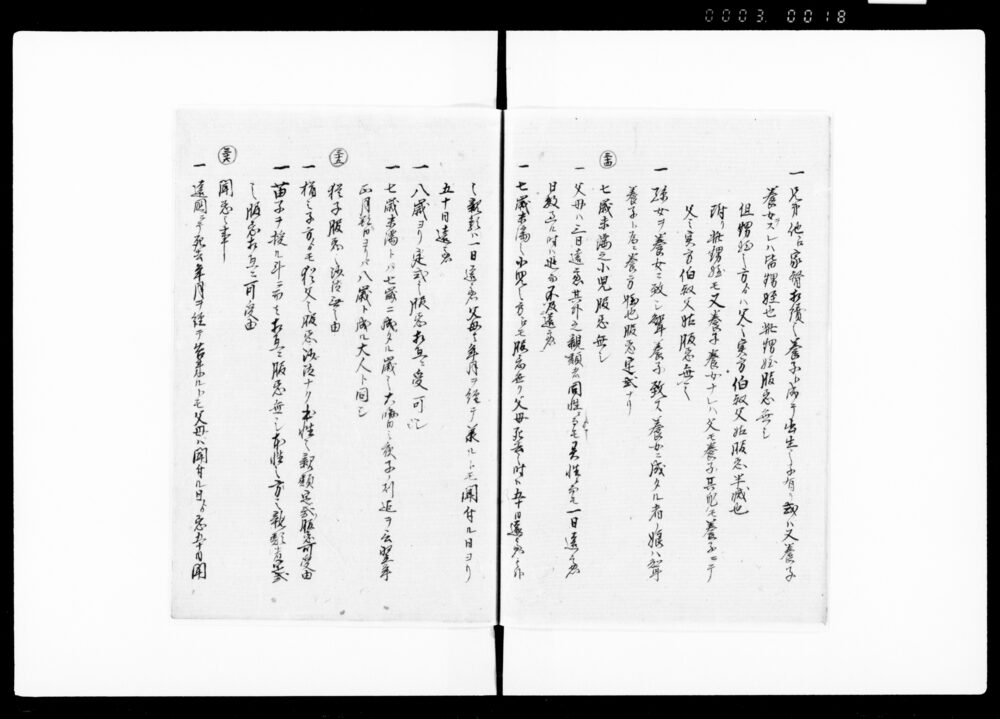 0003. 0018
一 兄弟他ニ家督相続シ養子ト成テ出生之子有リ或ハ又養子
養女スレハ皆甥姪也此甥姪服忌無シ
但甥姪之方ヨリハ父之実方伯叔父姑服忌半減也
附リ此甥姪モ又養子養女ナレハ父モ養子其身モ養子ニテ
父之実方伯叔父姑服忌無之
一 孫女ヲ養女ニ致シ聟養子致ス養女ニ成タル者ノ娘ハ聟
養子ト为ニ養方姪也服忌定式ナリ
七歳未満之小児服忌無シ
一 父母ハ三日遠慮其外之親類ハ同性ニ而モ異性ニ而モ一日遠慮
日数過ル時ハ追而不及遠慮
一 七歳未満之小児之方ニモ服忌無リ父母死去之時ハ五十日遠慮其外
之親類ハ一日遠慮父母ハ年月ヲ経テ承ルトモ聞付ル日ヨリ
五十日遠慮
一 八歳ヨリ定式之服忌相立可受
一 七歳未満トハ七歳ニ成タル歳之大晦日之夜子ノ刻迄ヲ云翌年
正月朔日ヨリハ八歳ト成ル大人ト同シ
猶子服忌之沙汰無之由
一 猶之子方ニモ猶父之服忌沙汰ナク本性之親類定式服忌可受由
一 苗字ヲ授ル斗ニ而モ相互服忌無シ本性之方之親類者定式
之服忌相互ニ可受由
聞忌之事
一 遠国ニテ死去年月ヲ経テ告来ルトモ父母ハ聞付ル日ヨリ忌五十日聞